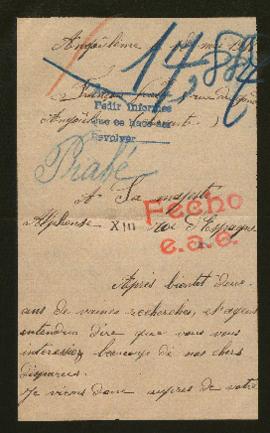 Angoulême
14,884
Pedir informes
que se hace sin
devolver
Angoulême Charente)
Prabé
A Sa majesté
Alphonse XIII Roi d'Espagne
Fecho
e.a.e.
Après bientôt deux
ans de vaines recherches, et ayant
entendu dire que vous vous
intéressiez beaucoup de nos chers
disparus.
Je viens donc auprès de votre